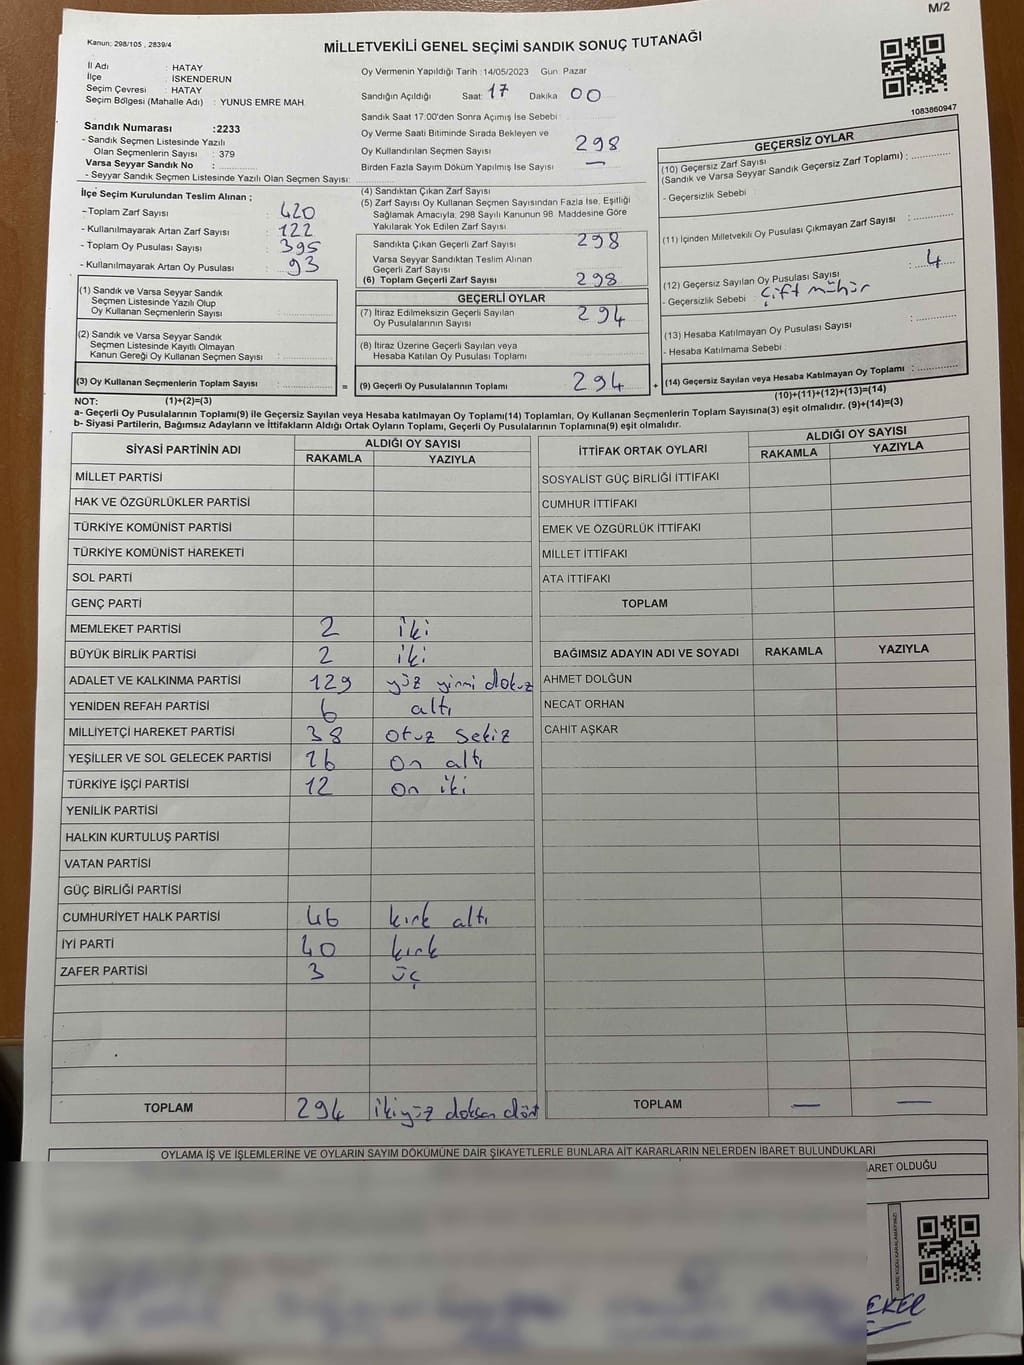 M/2
Kanun: 298/105 , 2839/4
MİLLETVEKİLİ GENEL SEÇİMİ SANDIK SONUÇ TUTANAĞI
İl Adı : HATAY
İlçe : İSKENDERUN
Seçim Çevresi : HATAY
Seçim Bölgesi (Mahalle Adı) : YUNUS EMRE MAH.
Sandık Numarası :2233
- Sandık Seçmen Listesinde Yazılı
Olan Seçmenlerin Sayısı : 379
Varsa Seyyar Sandık No :
- Seyyar Sandık Seçmen Listesinde Yazılı Olan Seçmen Sayısı:
Oy Vermenin Yapıldığı Tarih :14/05/2023 Gün: Pazar
Sandığın Açıldığı Saat: 17 Dakika 00
Sandık Saat 17:00'den Sonra Açımış İse Sebebi :
Oy Verme Saati Bitiminde Sırada Bekleyen ve
Oy Kullandırılan Seçmen Sayısı : 298
Birden Fazla Sayım Döküm Yapılmış İse Sayısı : —
1083860947
İlçe Seçim Kurulundan Teslim Alınan ;
-Toplam Zarf Sayısı : 420
- Kullanılmayarak Artan Zarf Sayısı : 122
- Toplam Oy Pusulası Sayısı : 395
- Kullanılmayarak Artan Oy Pusulası : 93
(1) Sandık ve Varsa Seyyar Sandık
Seçmen Listesinde Yazılı Olup
Oy Kullanan Seçmenlerin Sayısı :
(2) Sandık ve Varsa Seyyar Sandık
Seçmen Listesinde Kayıtlı Olmayan
Kanun Gereği Oy Kullanan Seçmen Sayısı :
(3) Oy Kullanan Seçmenlerin Toplam Sayısı :
=
(4) Sandıktan Çıkan Zarf Sayısı
(5) Zarf Sayısı Oy Kullanan Seçmen Sayısından Fazla İse, Eşitliği
Sağlamak Amacıyla; 298 Sayılı Kanunun 98. Maddesine Göre
Yakılarak Yok Edilen Zarf Sayısı :
Sandıkta Çıkan Geçerli Zarf Sayısı : 298
Varsa Seyyar Sandıktan Teslim Alınan
Geçerli Zarf Sayısı :
(6) Toplam Geçerli Zarf Sayısı : 298
GEÇERLİ OYLAR
(7) İtiraz Edilmeksizin Geçerli Sayılan
Oy Pusulalarının Sayısı : 294
(8) İtiraz Üzerine Geçerli Sayılan veya
Hesaba Katılan Oy Pusulası Toplamı :
(9) Geçerli Oy Pusulalarının Toplamı : 294
+
GEÇERSİZ OYLAR
(10) Geçersiz Zarf Sayısı
(Sandık ve Varsa Seyyar Sandık Geçersiz Zarf Toplamı) :
- Geçersizlik Sebebi
(11) İçinden Milletvekili Oy Pusulası Çıkmayan Zarf Sayısı :
(12) Geçersiz Sayılan Oy Pusulası Sayısı : 4
- Geçersizlik Sebebi : Çift mühür
(13) Hesaba Katılmayan Oy Pusulası Sayısı :
- Hesaba Katılmama Sebebi :
(14) Geçersiz Sayılan veya Hesaba Katılmayan Oy Toplamı :
(10)+(11)+(12)+(13)=(14)
NOT: (1)+(2)=(3)
a- Geçerli Oy Pusulalarının Toplamı(9) ile Geçersiz Sayılan veya Hesaba katılmayan Oy Toplamı(14) Toplamları, Oy Kullanan Seçmenlerin Toplam Sayısına(3) eşit olmalıdır. (9)+(14)=(3)
b- Siyasi Partilerin, Bağımsız Adayların ve İttifakların Aldığı Ortak Oyların Toplamı, Geçerli Oy Pusulalarının Toplamına(9) eşit olmalıdır.
SİYASİ PARTİNİN ADI ALDIĞI OY SAYISI
RAKAMLA YAZIYLA
MİLLET PARTİSİ
HAK VE ÖZGÜRLÜKLER PARTİSİ
TÜRKİYE KOMÜNİST PARTİSİ
TÜRKİYE KOMÜNİST HAREKETİ
SOL PARTİ
GENÇ PARTİ
MEMLEKET PARTİSİ 2 iki
BÜYÜK BİRLİK PARTİSİ 2 iki
ADALET VE KALKINMA PARTİSİ 129 yüz yirmi dokuz
YENİDEN REFAH PARTİSİ 6 altı
MİLLİYETÇİ HAREKET PARTİSİ 38 otuz sekiz
YEŞİLLER VE SOL GELECEK PARTİSİ 16 on altı
TÜRKİYE İŞÇİ PARTİSİ 12 on iki
YENİLİK PARTİSİ
HALKIN KURTULUŞ PARTİSİ
VATAN PARTİSİ
GÜÇ BİRLİĞİ PARTİSİ
CUMHURİYET HALK PARTİSİ 46 kırk altı
İYİ PARTİ 40 kırk
ZAFER PARTİSİ 3 üç
TOPLAM 294 ikiyüz doksan dört
İTTİFAK ORTAK OYLARI ALDIĞI OY SAYISI
RAKAMLA YAZIYLA
SOSYALİST GÜÇ BİRLİĞİ İTTİFAKI
CUMHUR İTTİFAKI
EMEK VE ÖZGÜRLÜK İTTİFAKI
MİLLET İTTİFAKI
ATA İTTİFAKI
TOPLAM
BAĞIMSIZ ADAYIN ADI VE SOYADI RAKAMLA YAZIYLA
AHMET DOLĞUN
NECAT ORHAN
CAHİT AŞKAR
TOPLAM — —
OYLAMA İŞ VE İŞLEMLERİNE VE OYLARIN SAYIM DÖKÜMÜNE DAİR ŞİKAYETLERLE BUNLARA AİT KARARLARIN NELERDEN İBARET BULUNDUKLARI
BARET OLDUĞU
KARE KODU KARALAMAYINIZ!